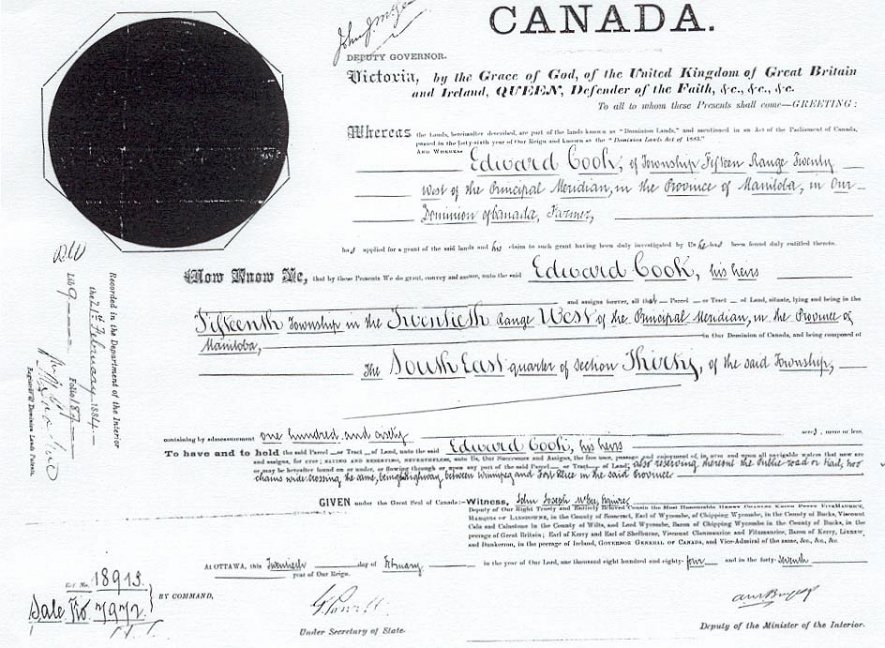 CANADA.
DEPUTY GOVERNOR.
Victoria, by the Grace of God, of the United Kingdom of Great Britain
and Ireland, QUEEN, Defender of the Faith, &c., &c., &c.
To all to whom these Presents shall come—GREETING:
Whereas the Lands, hereinafter described, are part of the lands known as "Dominion Lands," and mentioned in an Act of the Parliament of Canada,
passed in the forty-sixth year of Our Reign and known as the "Dominion Lands Act of 1883."
AND WHEREAS
Edward Cook, of Township Fifteen Range Twenty
West of the Principal Meridian, in the Province of Manitoba, in Our
Dominion of Canada, Farmer,
had applied for a grant of the said lands and his claim to such grant having been duly investigated by Us he had been found duly entitled thereto.
Now Know Ye, that by these Presents We do grant, convey and assure, unto the said Edward Cook, his heirs
and assigns forever, all that Parcel or Tract of Land, situate, lying and being in the
Fifteenth Township in the Twentieth Range West of the Principal Meridian, in the Province of
Manitoba, in Our Dominion of Canada, and being composed of
The South East quarter of Section Thirty, of the said Township,
containing by admeasurement one hundred and sixty acres, more or less.
To have and to hold the said Parcel or Tract of Land, unto the said Edward Cook, his heirs
and assigns, for ever; SAVING AND RESERVING, NEVERTHELESS, unto Us, Our Successors and Assigns, the free uses, passage and enjoyment of, in, over and upon all navigable waters that now are
or may be hereafter found on or under, or flowing through or upon any part of the said Parcel or Tract of Land; also reserving thereout the Public road or trail, two
chains wide crossing the same, being highway between Winnipeg and Fort Ellice in the said Province
GIVEN under the Great Seal of Canada:—Witness, John Joseph McGee, Esquire,
Deputy of Our Right Trusty and Entirely Beloved Cousin the Most Honorable HENRY CHARLES KEITH PETTY FITZMAURICE,
MARQUIS OF LANSDOWNE, in the County of Somerset, Earl of Wycombe, of Chipping Wycombe, in the County of Bucks, Viscount
Caln and Calnstone in the County of Wilts, and Lord Wycombe, Baron of Chipping Wycombe in the County of Bucks, in the
peerage of Great Britain; Earl of Kerry and Earl of Shelburne, Viscount Clanmaurice and Fitzmaurice, Baron of Kerry, Lixnaw,
and Dunkerron, in the peerage of Ireland, GOVERNOR GENERAL OF CANADA, and Vice-Admiral of the same, &c., &c., &c.
At OTTAWA, this Twentieth day of February in the year of Our Lord, one thousand eight hundred and eighty-four and in the forty-seventh
year of Our Reign.
Ref. No. 18913.
Sale No 7972
BY COMMAND,
Under Secretary of State.
Deputy of the Minister of the Interior.
Recorded in the Department of the Interior
the 21st February 1884
Lib 9 Folio 187
Registrar of Dominion Lands Patents.